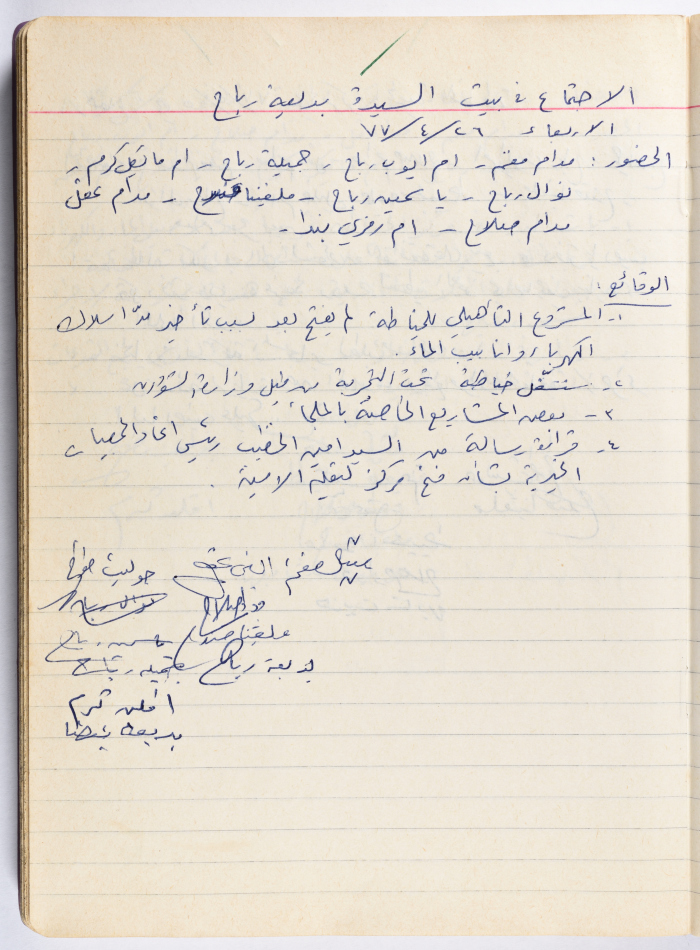 الاجتماع في بيت السيدة بديعة رباح
الاربعاء ٢٦/٤/٧٧
الحضور : مدام مغنم - ام ايوب رباح - جميلة رباح - ام مايكل كرم -
نوال رباح - ياسمين رباح - ملفينا - مدام عقل
مدام صلاح - ام رمزي بندا -
الوقائع :
١- المشروع التأهيلي للخياطة لم يفتح بعد بسبب تأخير مدّ اسلاك
الكهرباء وانابيب الماء .
٢- ستتنقل خياطة تحت التجربة من قبل وزارة الشؤون
٣- بعض المشاريع الخاصة بالملجأ
٤- قراءة رسالة من السيد امين الخطيب رئيس اتحاد الجمعيات
الخيرية بشأن فتح مركز لتعليم الامية .
مغنم
نوال رباح
ملفينا ياسمين رباح
بديعة رباح جميله رباح
افلين كرم
بديعه